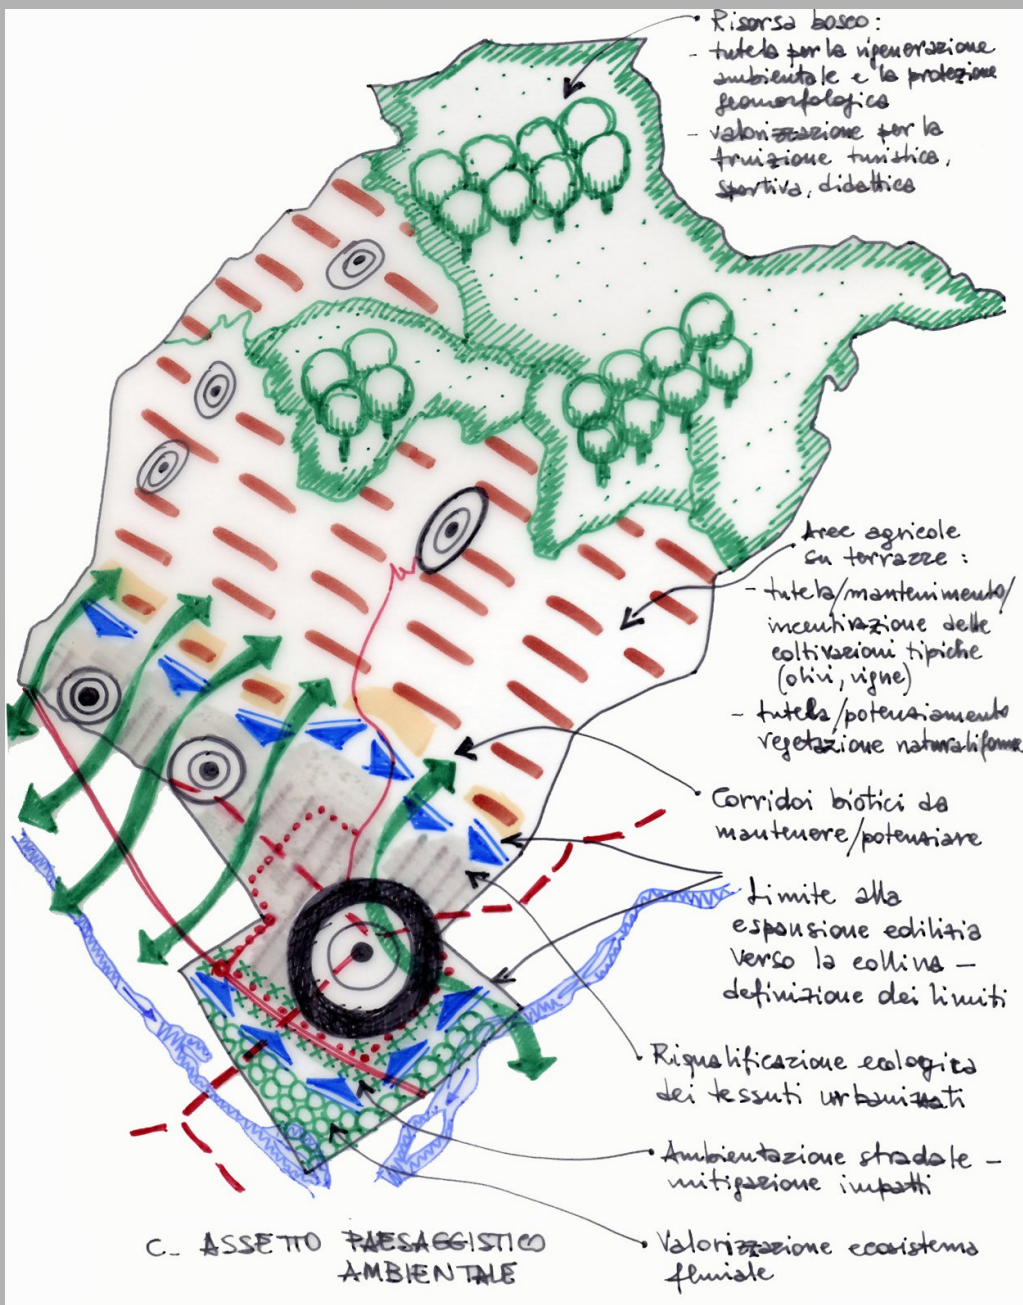 Risorsa bosco:
- tutela per la rigenerazione
ambientale e la protezione
geomorfologica
- valorizzazione per la
fruizione turistica,
sportiva, didattica
Aree agricole
su terrazze:
- tutela/mantenimento/
incentivazione delle
coltivazioni tipiche
(olivi, vigne)
- tutela/potenziamento
vegetazione naturaliforme
Corridoi biotici da
mantenere/potenziare
Limite alla
espansione edilizia
verso la collina -
definizione dei limiti
Riqualificazione ecologica
dei tessuti urbanizzati
Ambientazione stradale -
mitigazione impatti
Valorizzazione ecosistema
fluviale
C- ASSETTO PAESAGGISTICO
AMBIENTALE